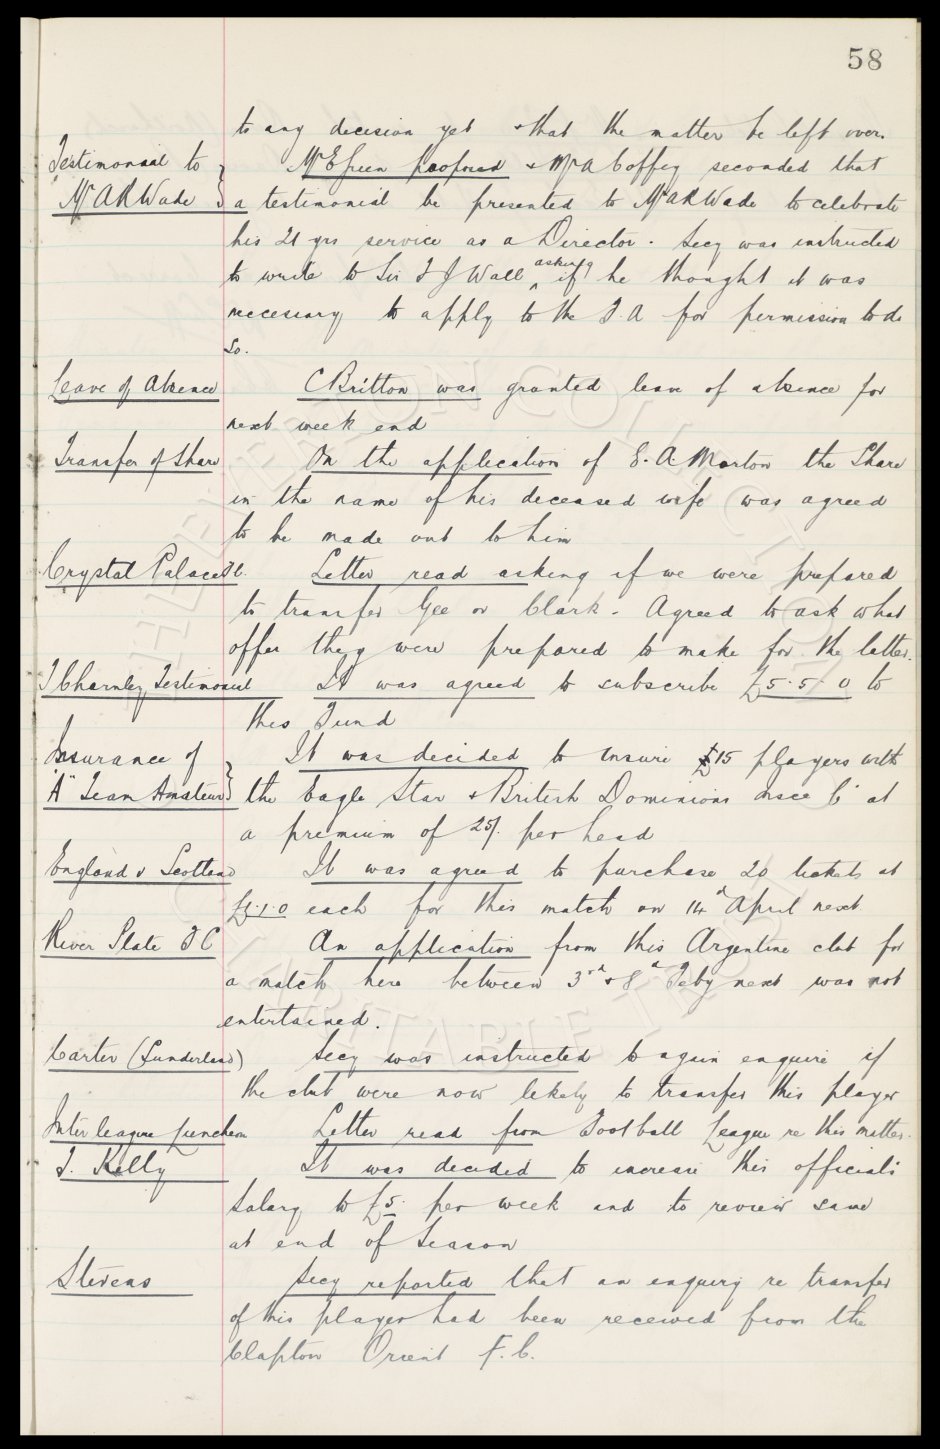 58
to any decision yet & that the matter be left over.
Testimonial to Mr E Green proposed & Mr A Coffey seconded that
Mr A R Wade a testimonial be presented to Mr A R Wade to celebrate
his 21 yrs service as a Director. Secy was instructed
to write to Sir F J Wall asking if he thought it was
necessary to apply to the F.A for permission to do
so.
Leave of Absence C Britton was granted leave of absence for
next week end
Transfer of Share On the application of E. A. Morton the Share
in the name of his deceased wife was agreed
to be made out to him
Crystal Palace F.C. Letter read asking if we were prepared
to transfer Gee or Clark - Agreed to ask what
offer they were prepared to make for the latter.
J Charnley Testimonial It was agreed to subscribe £5.5.0 to
this Fund
Insurance of It was decided to insure 15 players with
"A" Team Amateurs the Eagle Star & British Dominions Insce Co at
a premium of 25/- per head
England v Scotland It was agreed to purchase 20 tickets at
£1.1.0 each for this match on 14th April next
River Plate F C An application from this Argentine club for
a match here between 3rd & 8th Feby next was not
entertained.
Carter (Sunderland) Secy was instructed to again enquire if
the club were now likely to transfer this player
Inter league Luncheon Letter read from Football League re this matter.
T. Kelly It was decided to increase this officials
salary to £5. per week and to review same
at end of Season
Stevens Secy reported that an enquiry re transfer
of this player had been received from the
Clapton Orient F.C.